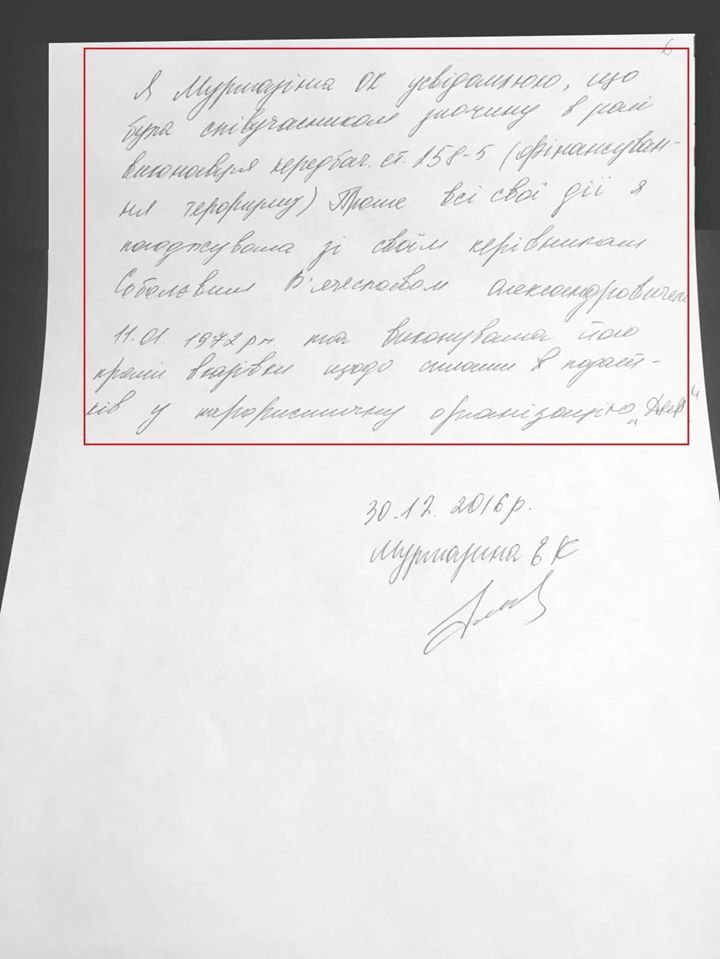 6
Я Мурмазіна ОК усвідомлюю, що
була співучасником злочину в ролі
виконавця передбач. ст. 258-5 (фінансуван-
ня тероризму) Проте всі свої дії я
погоджувала зі своїм керівником
Соболєвим В'ячеславом Олександровичем
11.01.1972 рн. та виконувала його
прямі вказівки щодо сплати податі-
ків у терористичну організацію „ДНР"
30.12.2016р.
Мурмазина Е К